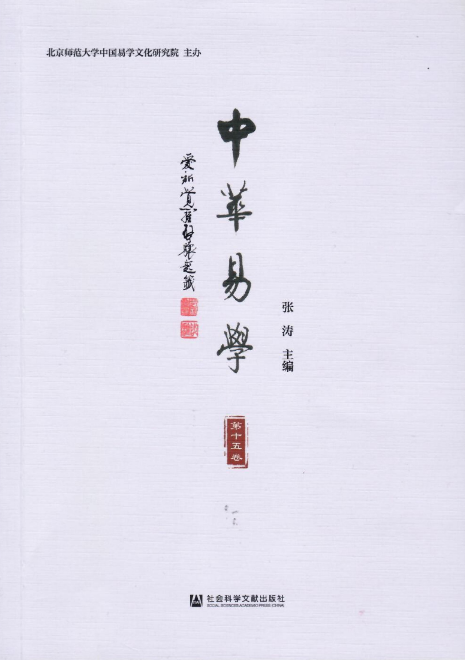 北京师范大学中国易学文化研究院 主办
中華易學
张涛 主编
第十五卷
社会科学文献出版社
SOCIAL SCIENCES ACADEMIC PRESS (CHINA)